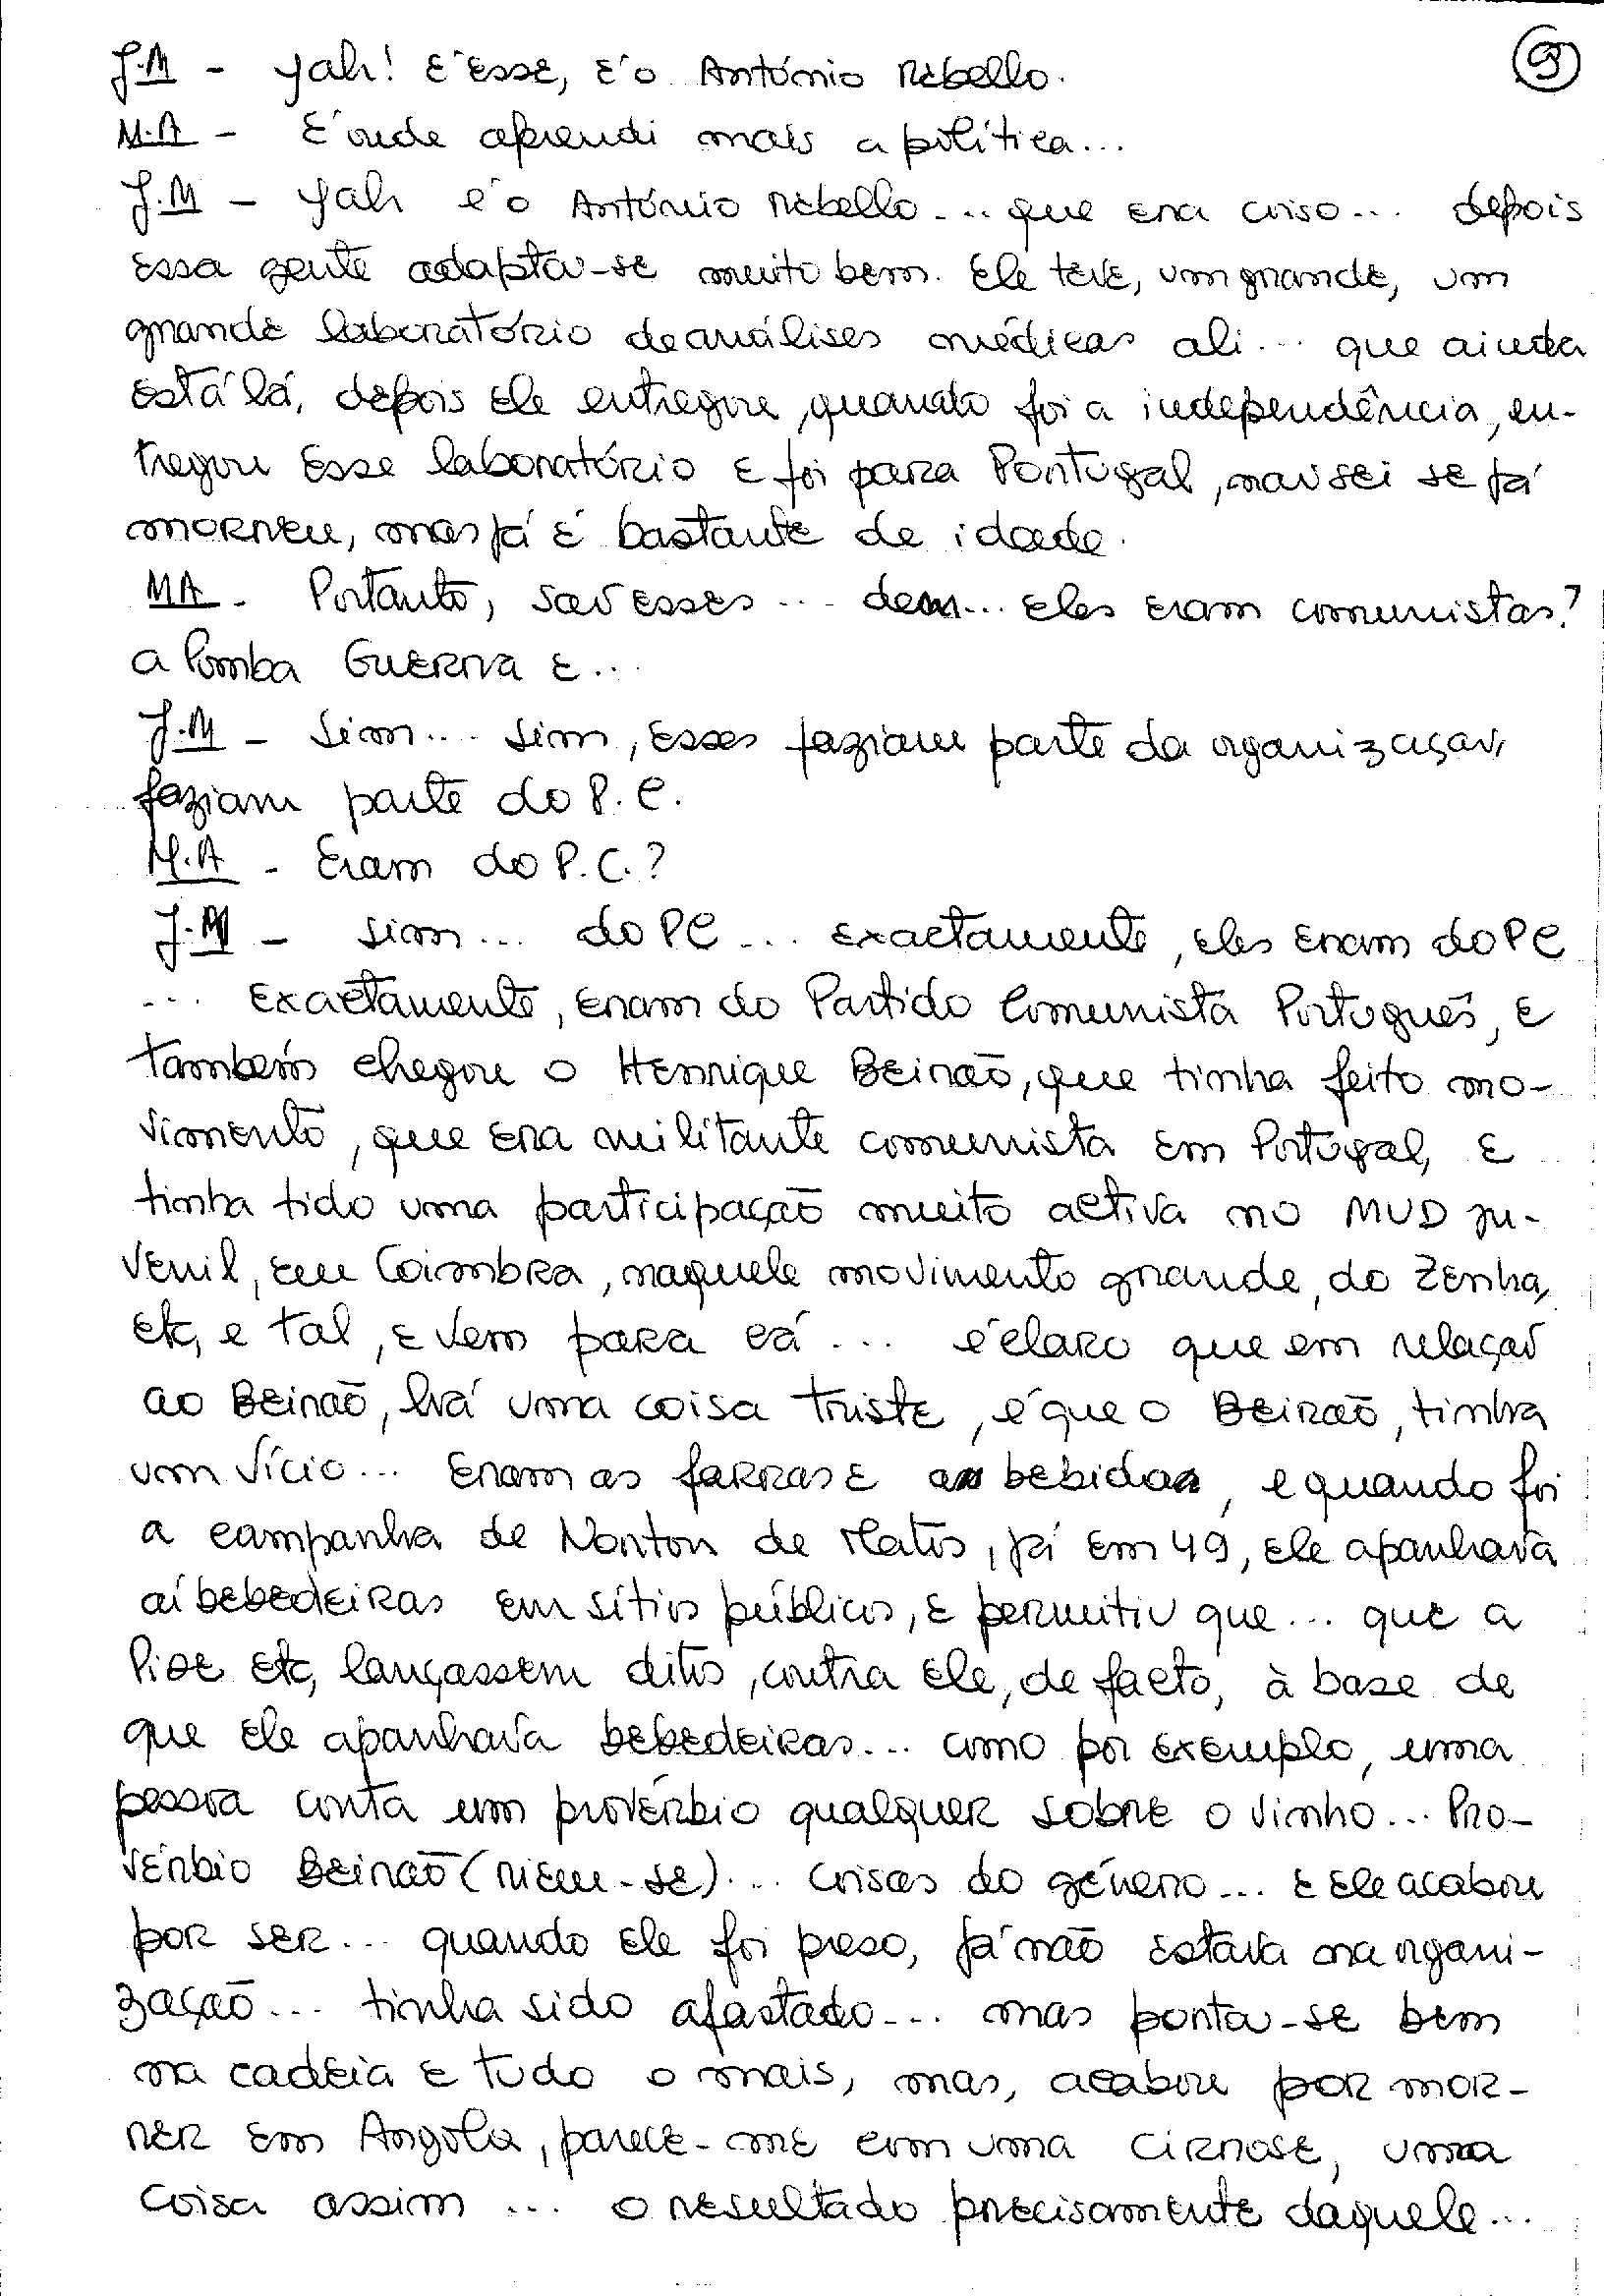 9
J.M - Yah! É esse, é o António Rebello.
M.A - É onde aprendi mais a política...
J.M - Yah é o António Rebello... que era curso... depois
essa gente adaptou-se muito bem. Ele teve, um grande, um
grande laboratório de análises médicas ali... que ainda
está lá, depois ele entregou, quando foi a independência, en-
tregou esse laboratório e foi para Portugal, não sei se já
morreu, mas já é bastante de idade.
MA - Portanto, são esses... dem... eles eram comunistas?
a Pomba Guerra e...
J.M - Sim... sim, esses faziam parte da organização,
faziam parte do P.C.
M.A - Eram do P.C.?
J.M - Sim... do PC... exactamente, eles eram do PC
... exactamente, eram do Partido Comunista Português, e
também chegou o Henrique Beirão, que tinha feito mo-
vimento, que era militante comunista em Portugal, e
tinha tido uma participação muito activa no MUD ju-
venil, em Coimbra, naquele movimento grande, do Zenha,
etc, e tal, e vem para cá... é claro que em relação
ao Beirão, há uma coisa triste, é que o Beirão, tinha
um vício... eram as farras e as bebidas, e quando foi
a campanha de Norton de Matos, já em 49, ele apanhava
aí bebedeiras em sítios públicos, e permitiu que... que a
Pide etc, lançassem ditos, contra ele, de facto, à base de
que ele apanhava bebedeiras... como por exemplo, uma
pessoa conta um provérbio qualquer sobre o vinho... Pro-
vérbio Beirão (riem-se)... coisas do género... e ele acabou
por ser... quando ele foi preso, já não estava na organi-
zação... tinha sido afastado... mas portou-se bem
na cadeia e tudo o mais, mas, acabou por mor-
rer em Angola, parece-me com uma cirrose, uma
coisa assim... o resultado precisamente daquele...